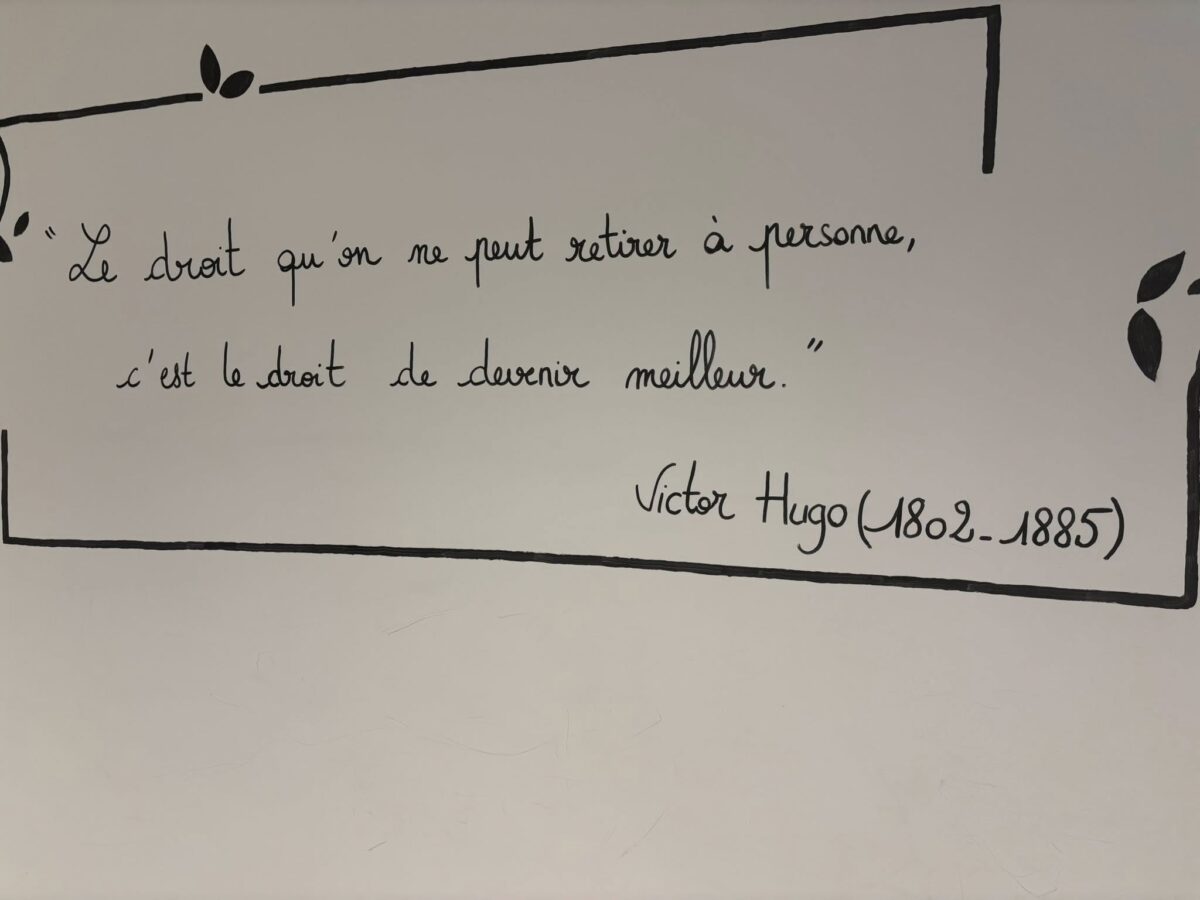 “Le droit qu'on ne peut retirer à personne,
c'est le droit de devenir meilleur.”
Victor Hugo (1802-1885)